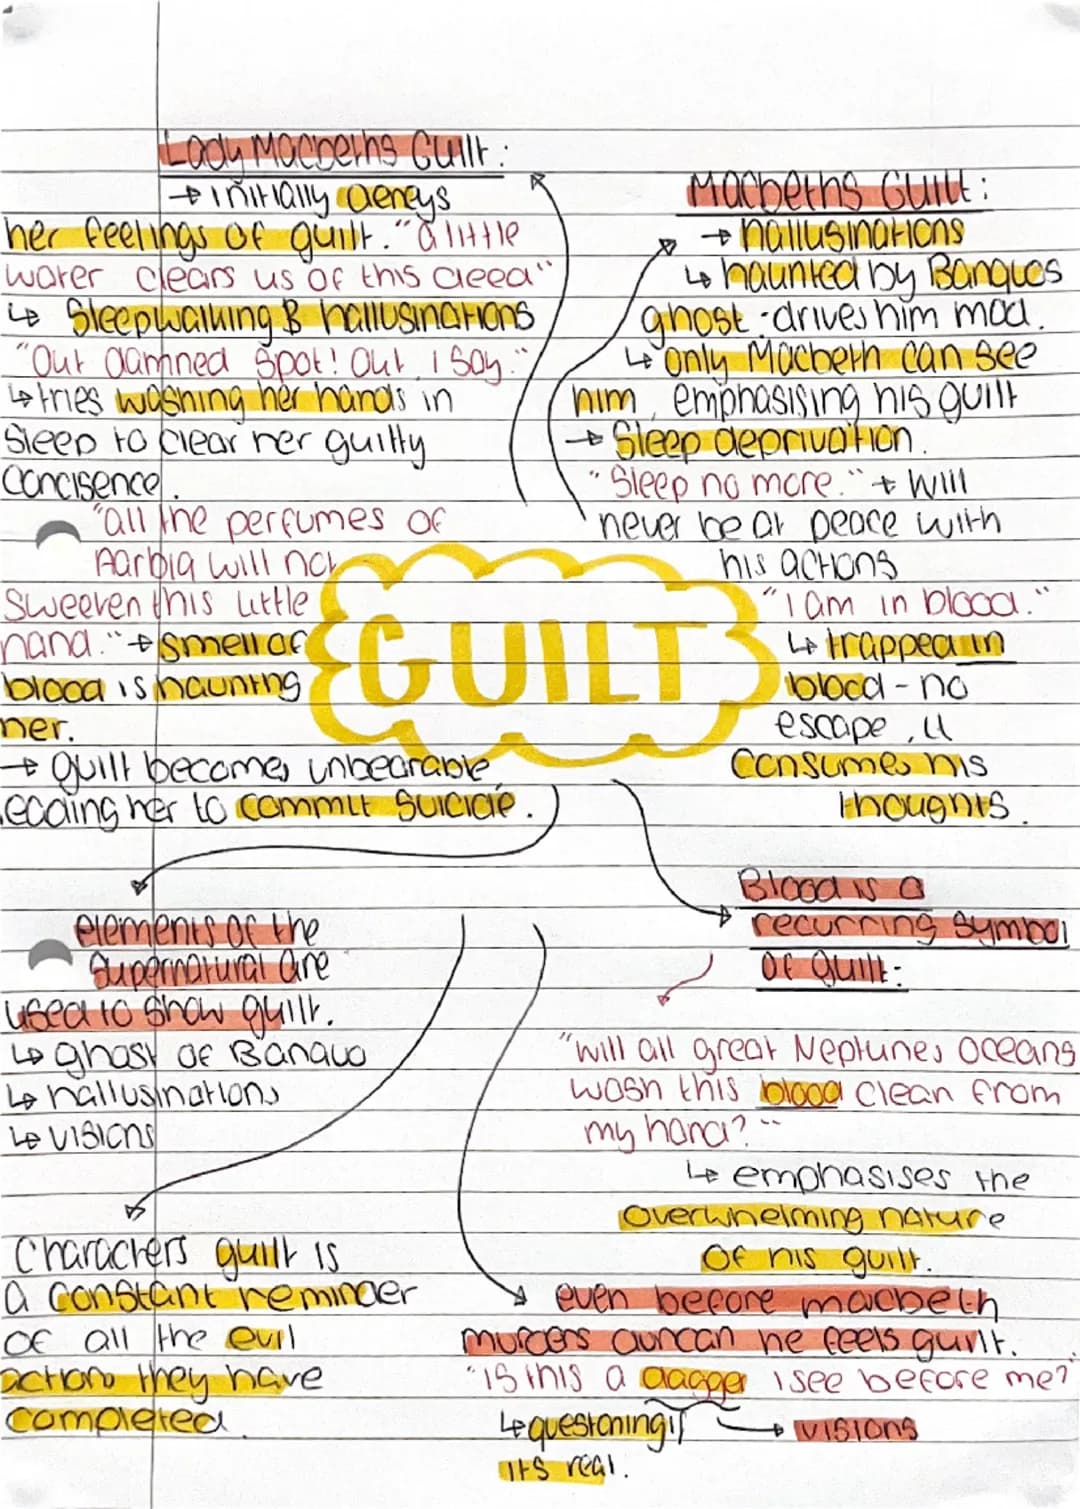 Lady Macbeths Guilt:
→ initially deneys
her feelings of guilt. "a little
water clears us of this deed"
↳ Sleepwalking & hallusinations
"Out damned spot! Out, I say."
↳ tries washing her hands in
Sleep to clear her guilty
Concisence.
"all the perfumes of
Aarbia will not
Sweeten this little
hand." → smell of
blood is haunting
her.
→ guilt becomes unbearable
leading her to commit suicide.
Macbeths Guilt:
→ hallusinations
↳ haunted by Banquos
ghost · drives him mad.
↳ only Macbeth can see
him, emphasising his guilt
→ Sleep deprivation.
"Sleep no more." → Will
never be at peace with
his actions
"I am in blood."
↳ trapped in
blood - no
escape, it
Consumes his
thoughts.
GUILT
elements of the
Supernatural are
used to show guilt.
↳ ghost of Banquo
↳ hallusinations
↳ visions
Characters guilt is
a constant reminder
of all the evil
actions they have
completed.
Blood is a
recurring symbol
of guilt:
"will all great Neptunes oceans
wash this blood clean from
my hand?"
↳ emphasises the
overwhelming nature
of his guilt.
even before macbeth
murders duncan he feels guilt.
"is this a dagger i see before me?"
↳ questoning if → visions
its real.